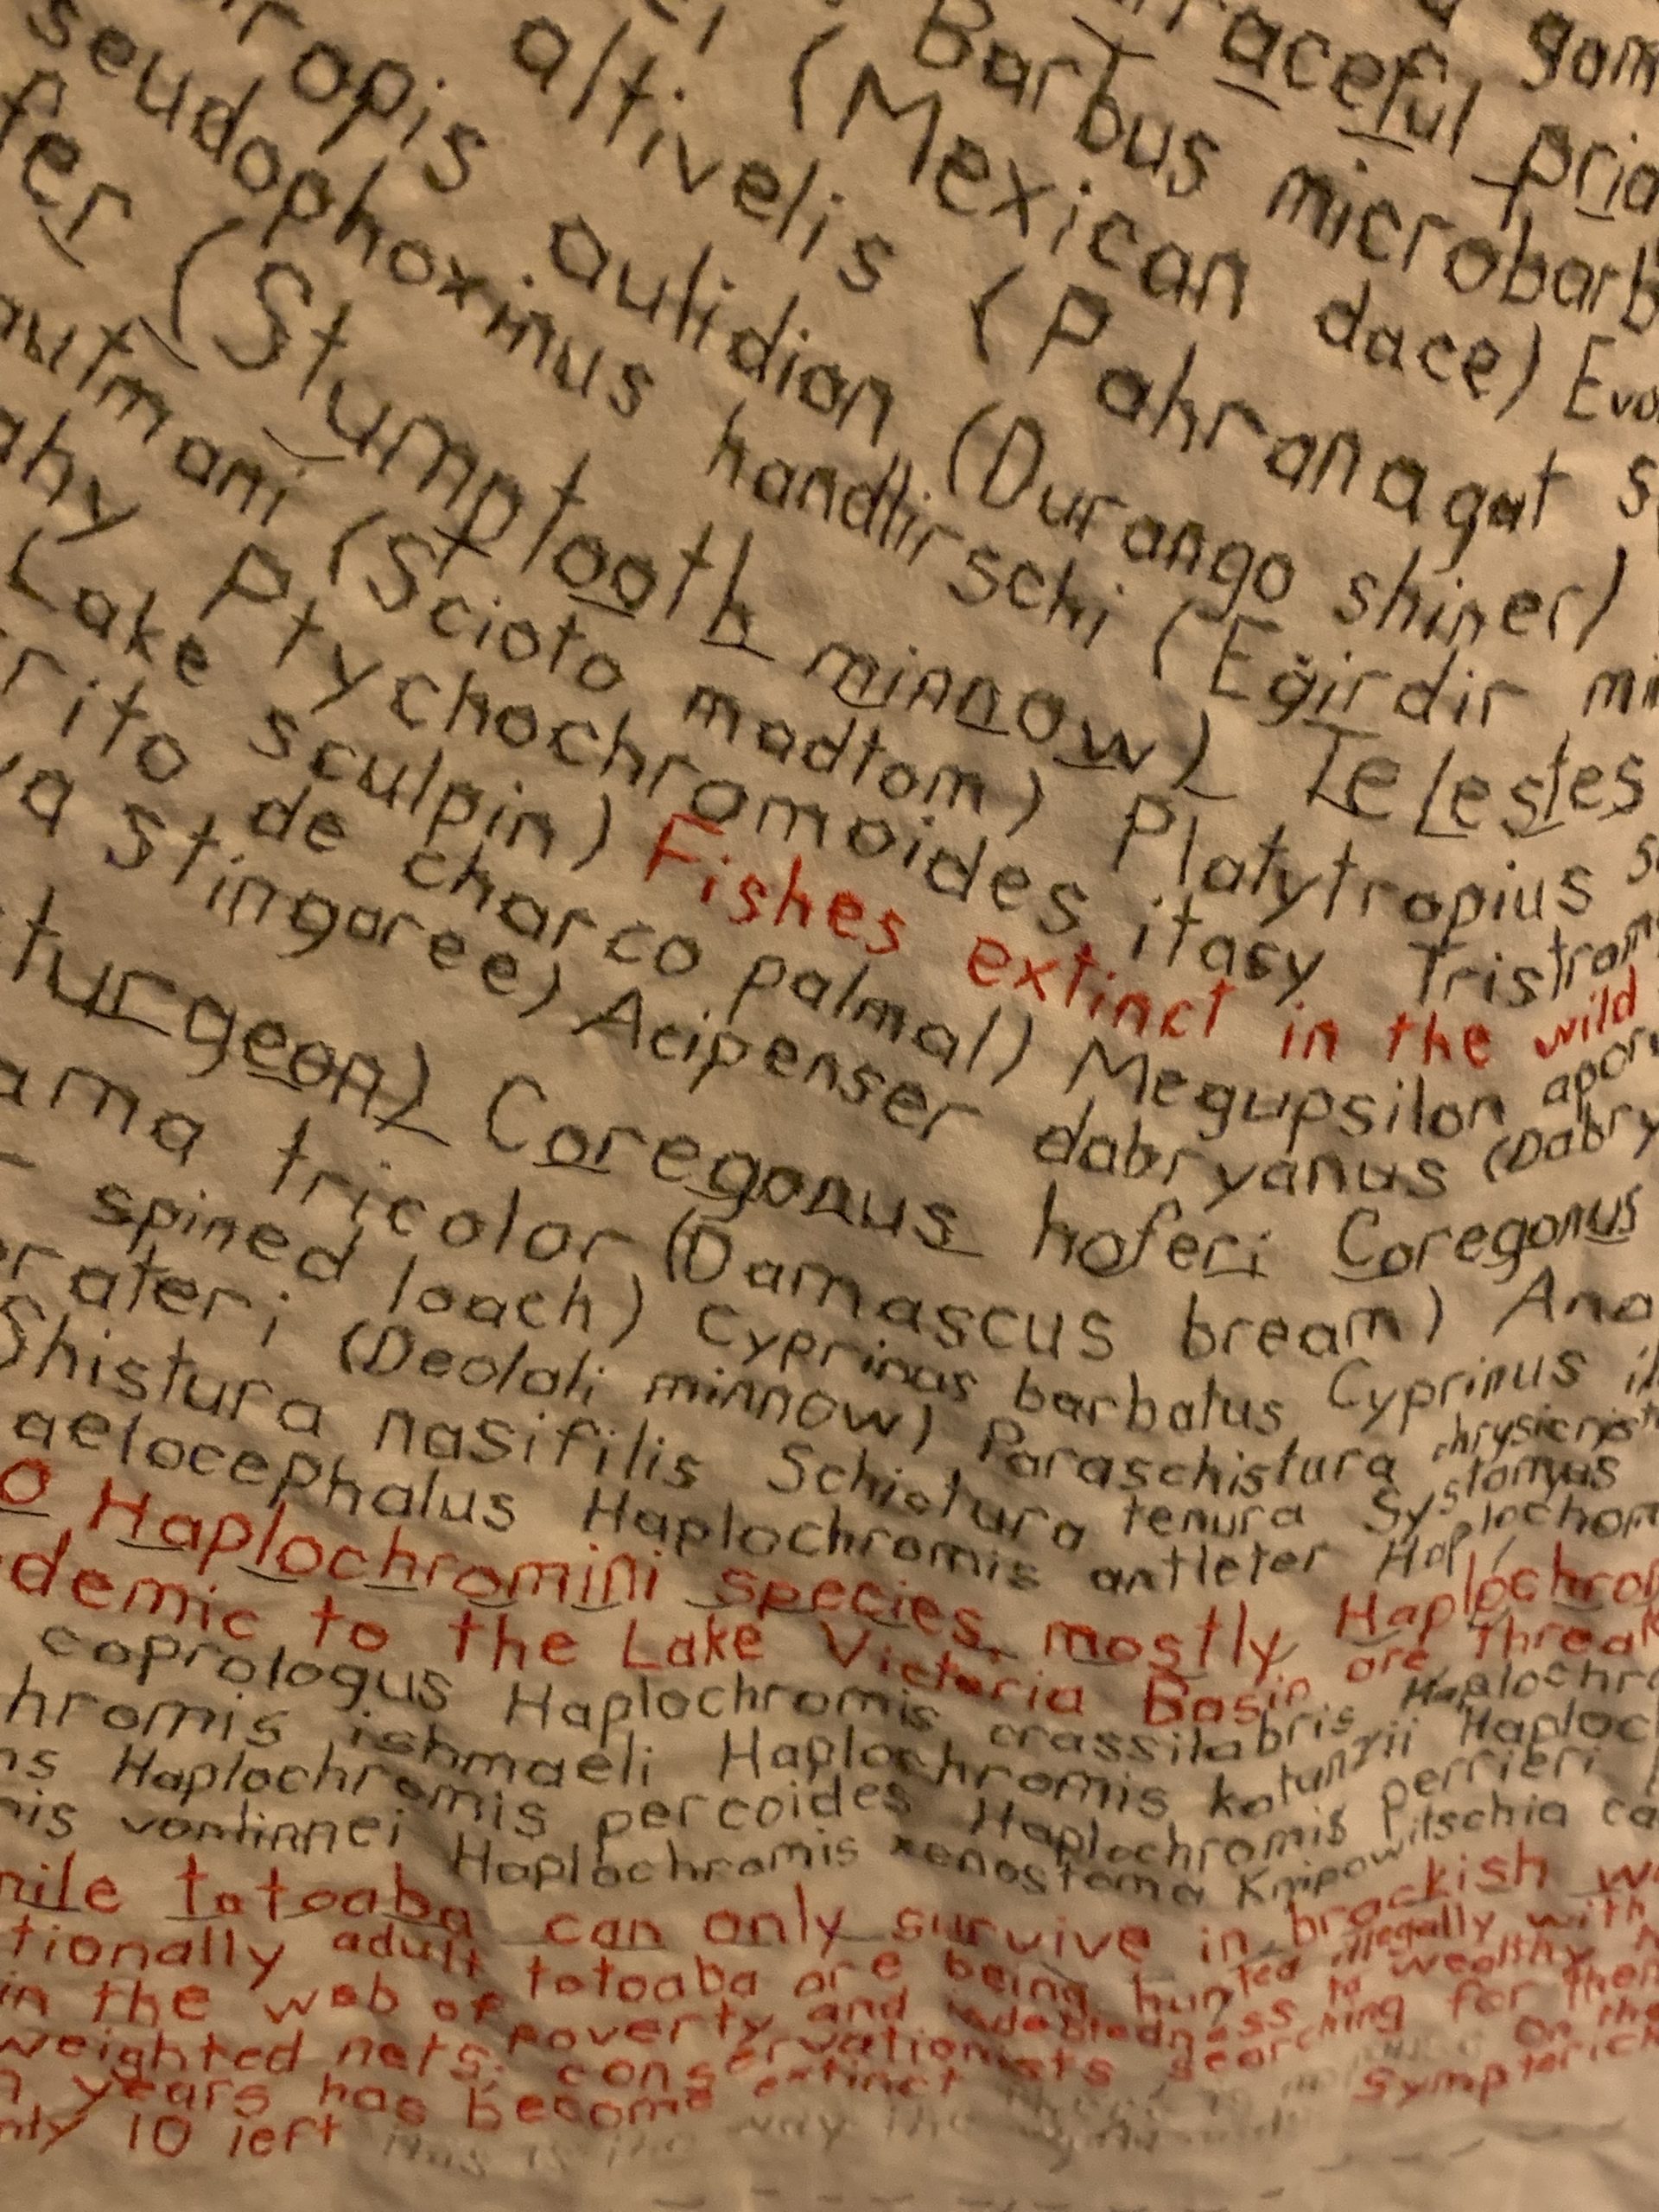 gam
raceful pria
Barbus microbarb
(Mexican dace) Evo
altivelis (Pahranagat s
ropis aulidion (Durango shiner)
seudophoxinus handlirschi (Eğirdir mi
fer (Stumptooth minnow) Telestes
autmani (Scioto madtom) Platytropius s
ahy Ptychochromoides itasy Tristram
Lake sculpin) Fishes extinct in the wild
rito de charco palmal) Megupsilon apor
va Stingaree) Acipenser dabryanus (Dabry
turgeon) Coregonus hoferi Coregonus
ama tricolor (Damascus bream) Ana
spined loach) Cyprinus barbatus Cyprinus il
rateri (Deolali minnow) Paraschistura
Shistura nasifilis Schistura tenura Systomus
aelocephalus Haplochromis antleter Haplochrom
o Haplochromini species, mostly Haplochrom
demic to the Lake Victoria Basin are threat
coprologus Haplochromis crassilabris Haplochro
hromis ishmaeli Haplochromis katunzii Haploc
ns Haplochromis percoides Haplochromis perrieri
mis vonlinnei Haplochromis xenostoma Knipowitschia ca
nile totoaba can only survive in brackish wa
tionally adult totoaba are being hunted illegally with
in the web of poverty and indebtedness to wealthy
weighted nets; conservationists searching for them
n years has become extinct on the
nly 10 left Sympterich